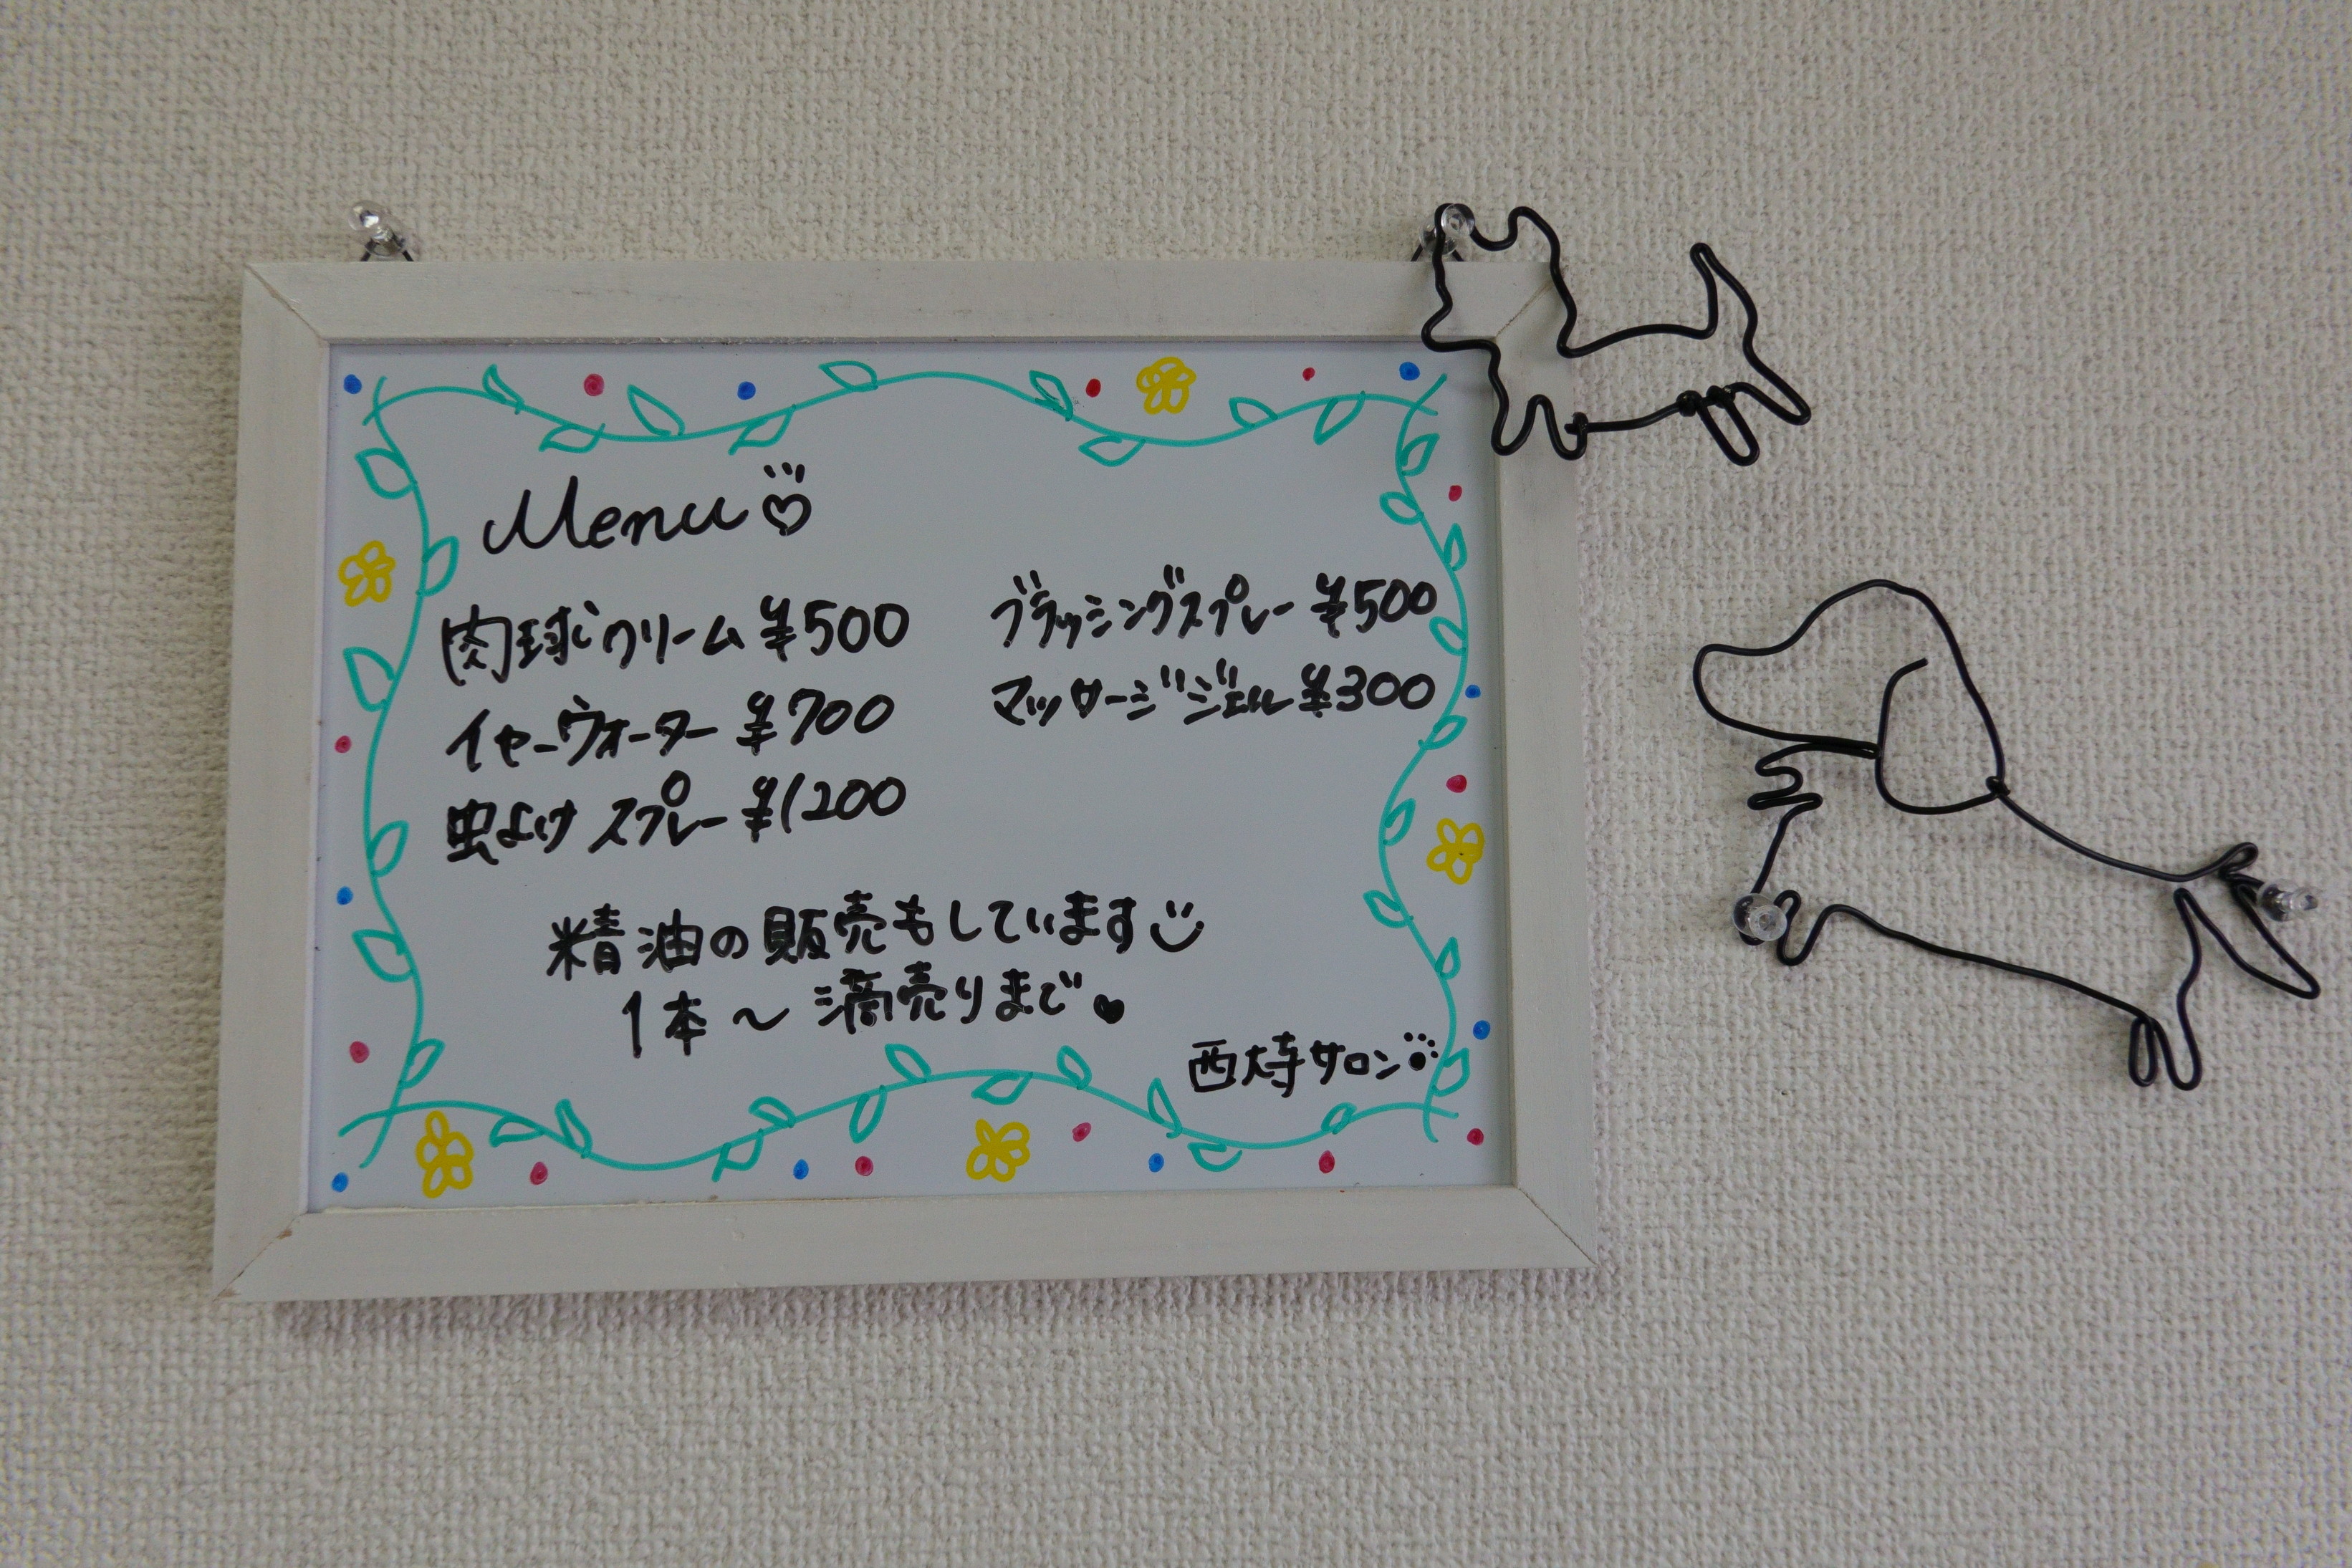 Menu
肉球クリーム ¥500
イヤーウォーター ¥700
虫よけスプレー ¥1200
ブラッシングスプレー ¥500
マッサージジェル ¥300
精油の販売もしています
1本〜滴売りまで
西大寺サロン